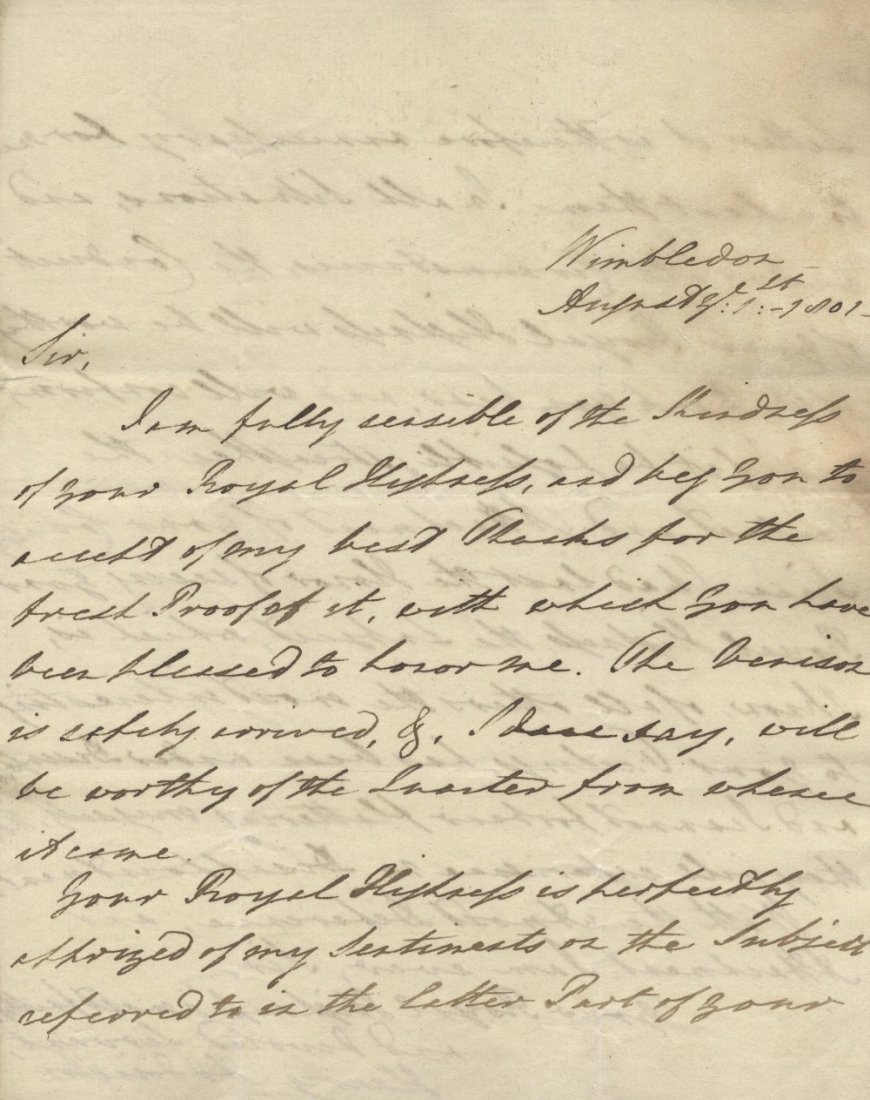 Wimbledon
August ye: 1st:-1801-
Sir,
I am fully sensible of the Kindness
of your Royal Highness, and beg you to
accept of, my best Thanks for the
fresh Proof of it, with which you have
been pleased to honor me. The Venison
is safely arrived, &, I dare say, will
be worthy of the Quarter from whence
it came.
Your Royal Highness is perfectly
apprized of my Sentiments on the Subject
referred to in the latter Part of your